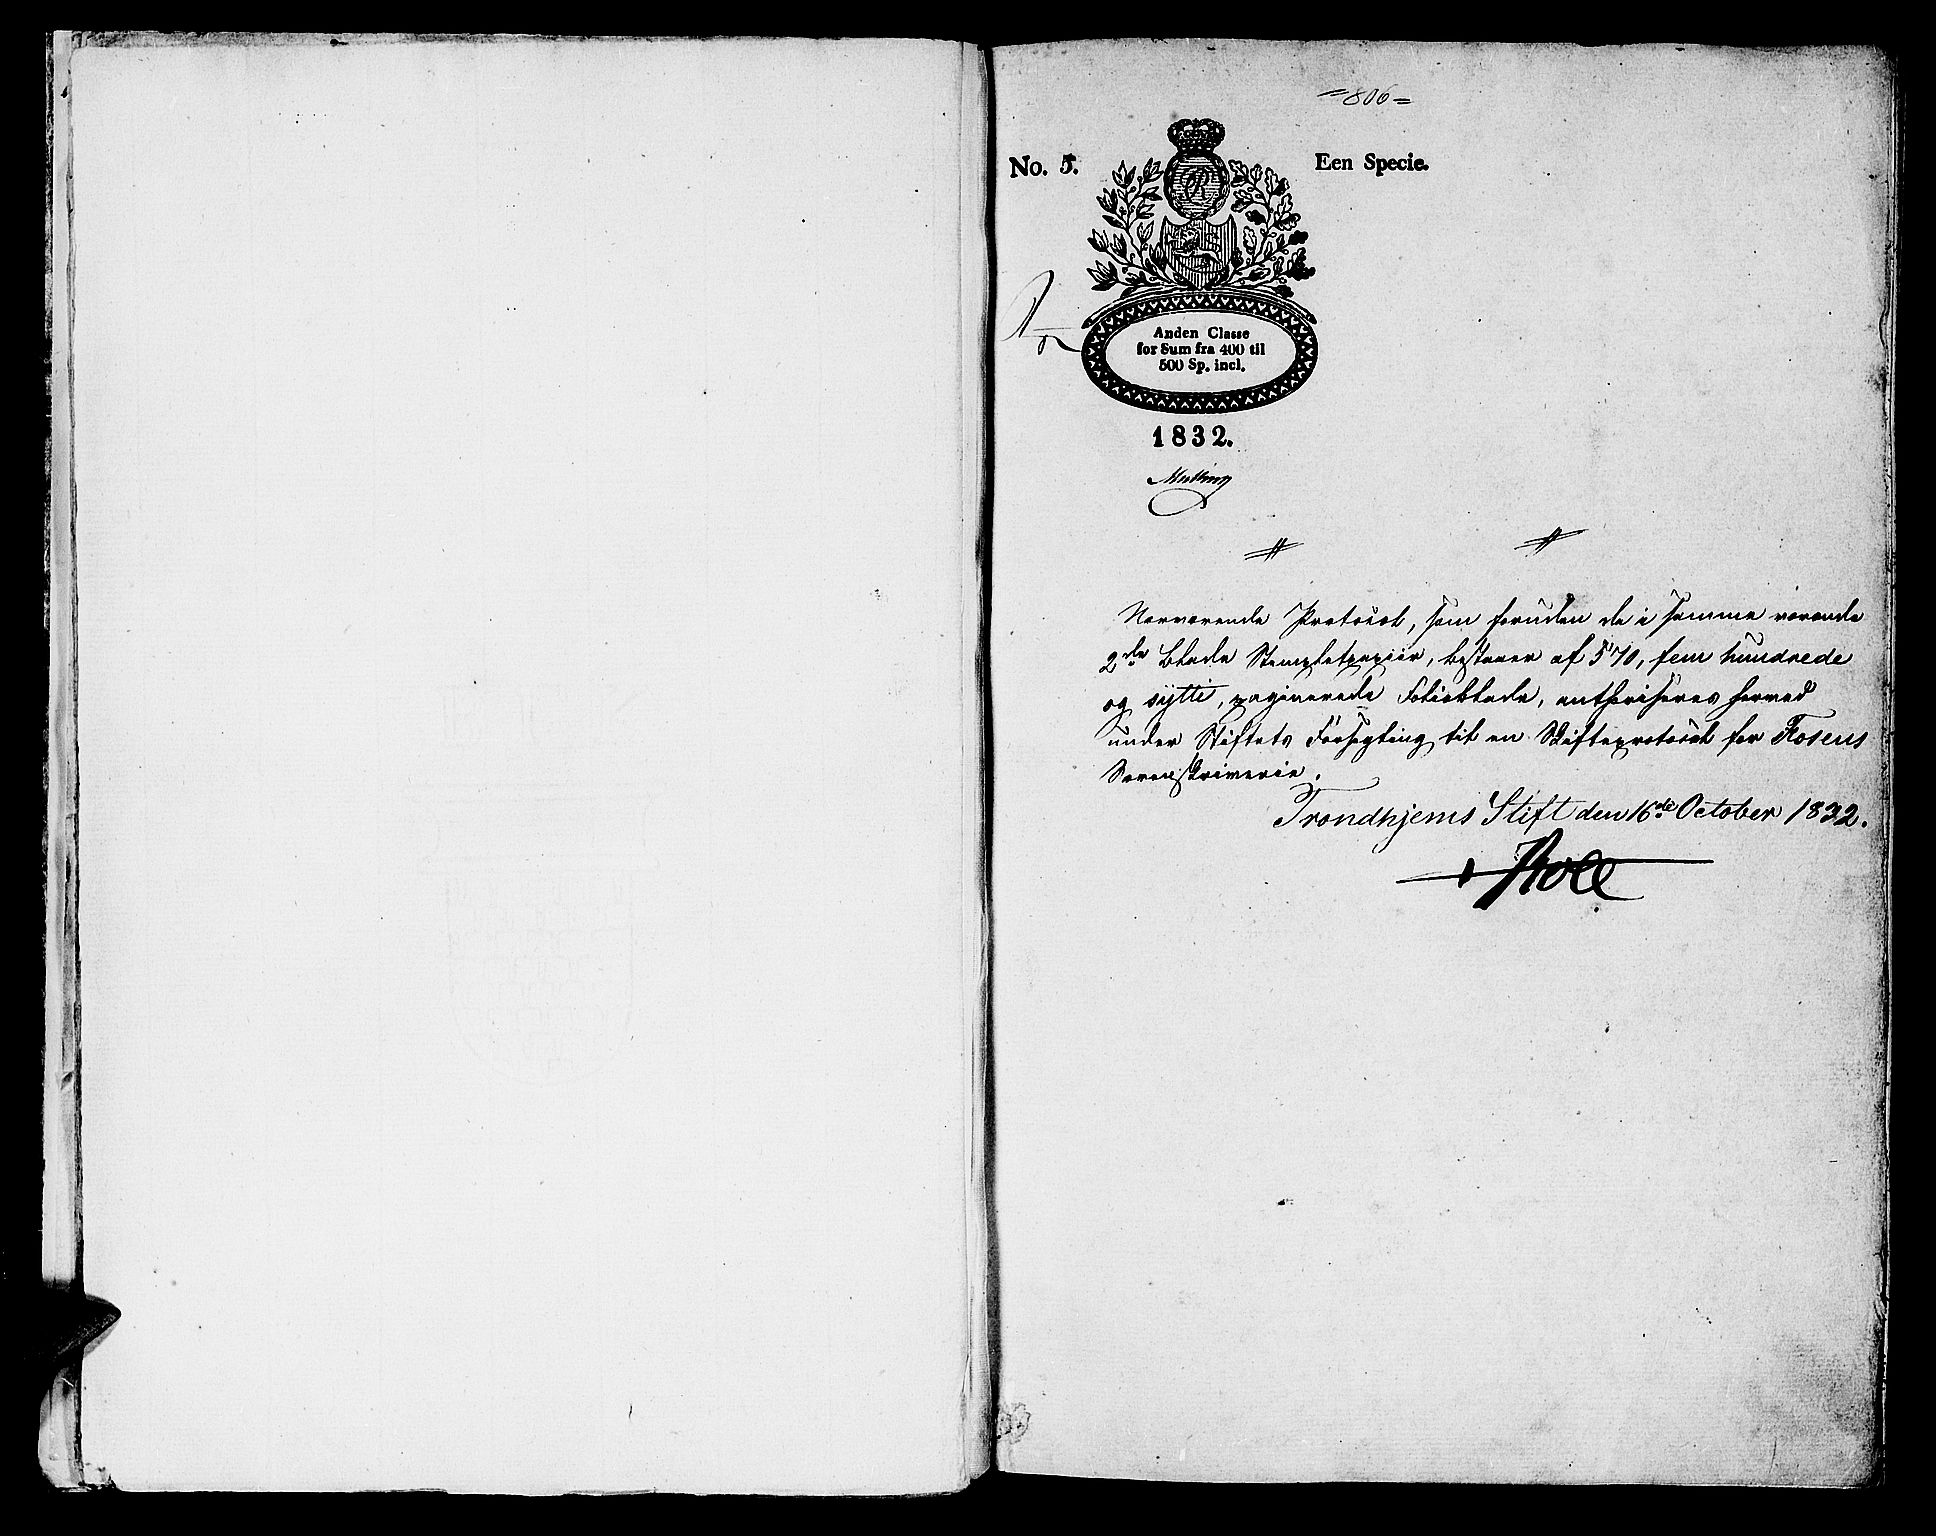 =806=
No. 5.
Een Specie.
Anden Classe
for Sum fra 400 til
500 Sp. incl.
1832.
Nærværende Protocol, som foruden de i samme værende
2de Blade Stempletpapiir, bestaaer af 570, fem hundrede
og sÿtti, paginerede Folioblade, authoriseres herved
under Stiftets Forsegling til en Skifteprotocol for Fosens
Sorenskriverie.
Trondhjems Stift den 16de October 1832.